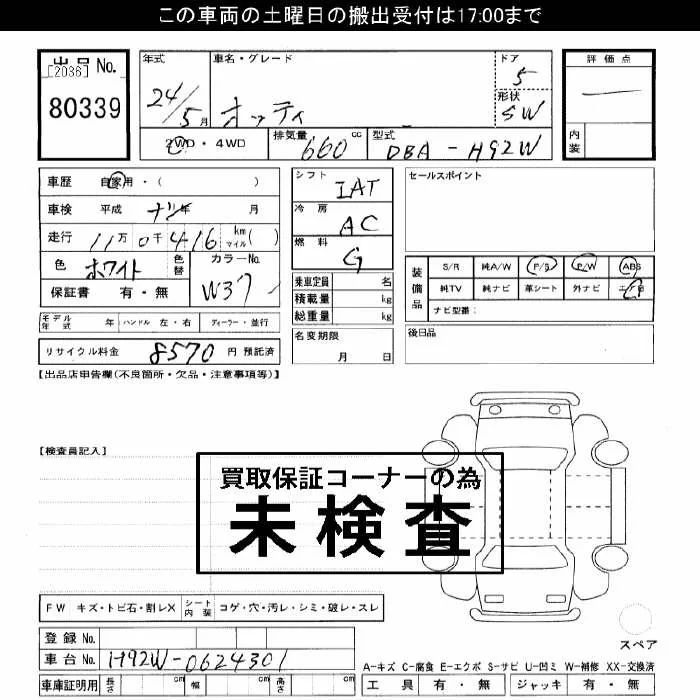 この車両の土曜日の搬出受付は17:00まで
出品 No.
[2036]
80339
年式
24/5月
車名・グレード
オッティ
ドア
5
形状
SW
2WD・4WD
排気量
660 cc
型式
DBA-H92W
評価点
内装
車歴 自家用・( )
車検 平成 ナシ年 月
走行 11万0千416 km マイル( )
色 ホワイト 色替
カラーNo.
W37
保証書 有・無
シフト
IAT
冷房
AC
燃料
G
乗車定員 名
積載量 kg
総重量 kg
名変期限
月 日
セールスポイント
装備品
S/R 純A/W P/S P/W ABS
純TV 純ナビ 革シート 外ナビ エアB
ナビ型番:
後日品
モデル年式 年 ハンドル 左・右 ディーラー・並行
リサイクル料金 8570 円 預託済
【出品店申告欄(不良箇所・欠品・注意事項等)】
【検査員記入】
買取保証コーナーの為
未検査
FW キズ・トビ石・割レX シート内装 コゲ・穴・汚レ・シミ・破レ・スレ
スペア
登録 No.
車台 No. H92W-0624301
車庫証明用 長さ cm 幅 cm 高さ cm
A-キズ C-腐食 E-エクボ S-サビ U-凹ミ W-補修 XX-交換済
工具 有・無 ジャッキ 有・無